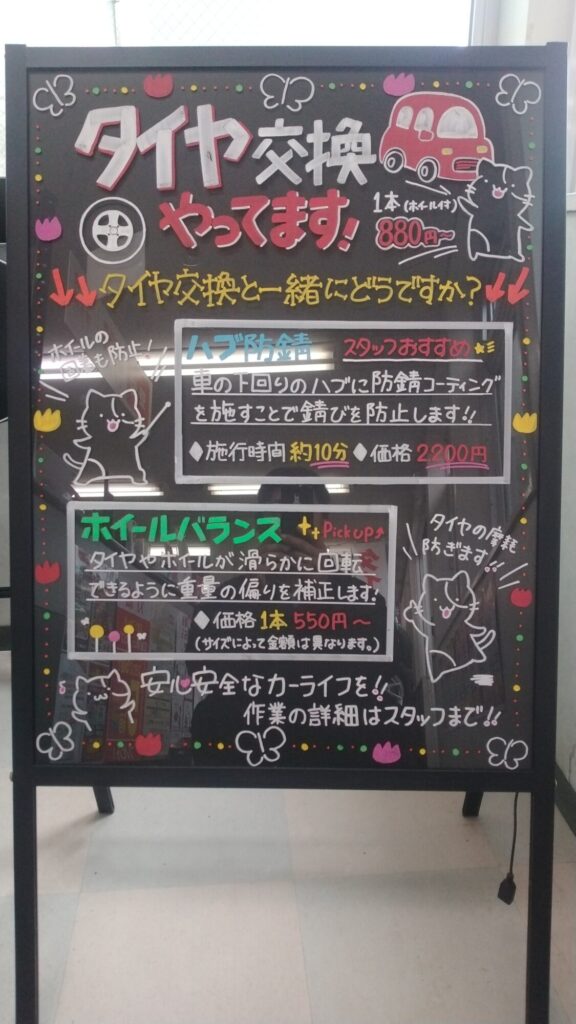 タイヤ交換
やってます!
1本(ホイール付)
880円～
タイヤ交換と一緒にどうですか?
ホイールの
固着も防止!
ハブ防錆 スタッフおすすめ
車の下回りのハブに防錆コーティング
を施すことで錆びを防止します!!
◆施行時間 約10分 ◆価格 2200円
ホイールバランス Pick up♪
タイヤやホイールが滑らかに回転
できるように重量の偏りを補正します!
◆価格 1本 550円～
(サイズによって金額は異なります。)
タイヤの摩耗
防ぎます!!
安心安全なカーライフを!!
作業の詳細はスタッフまで!!